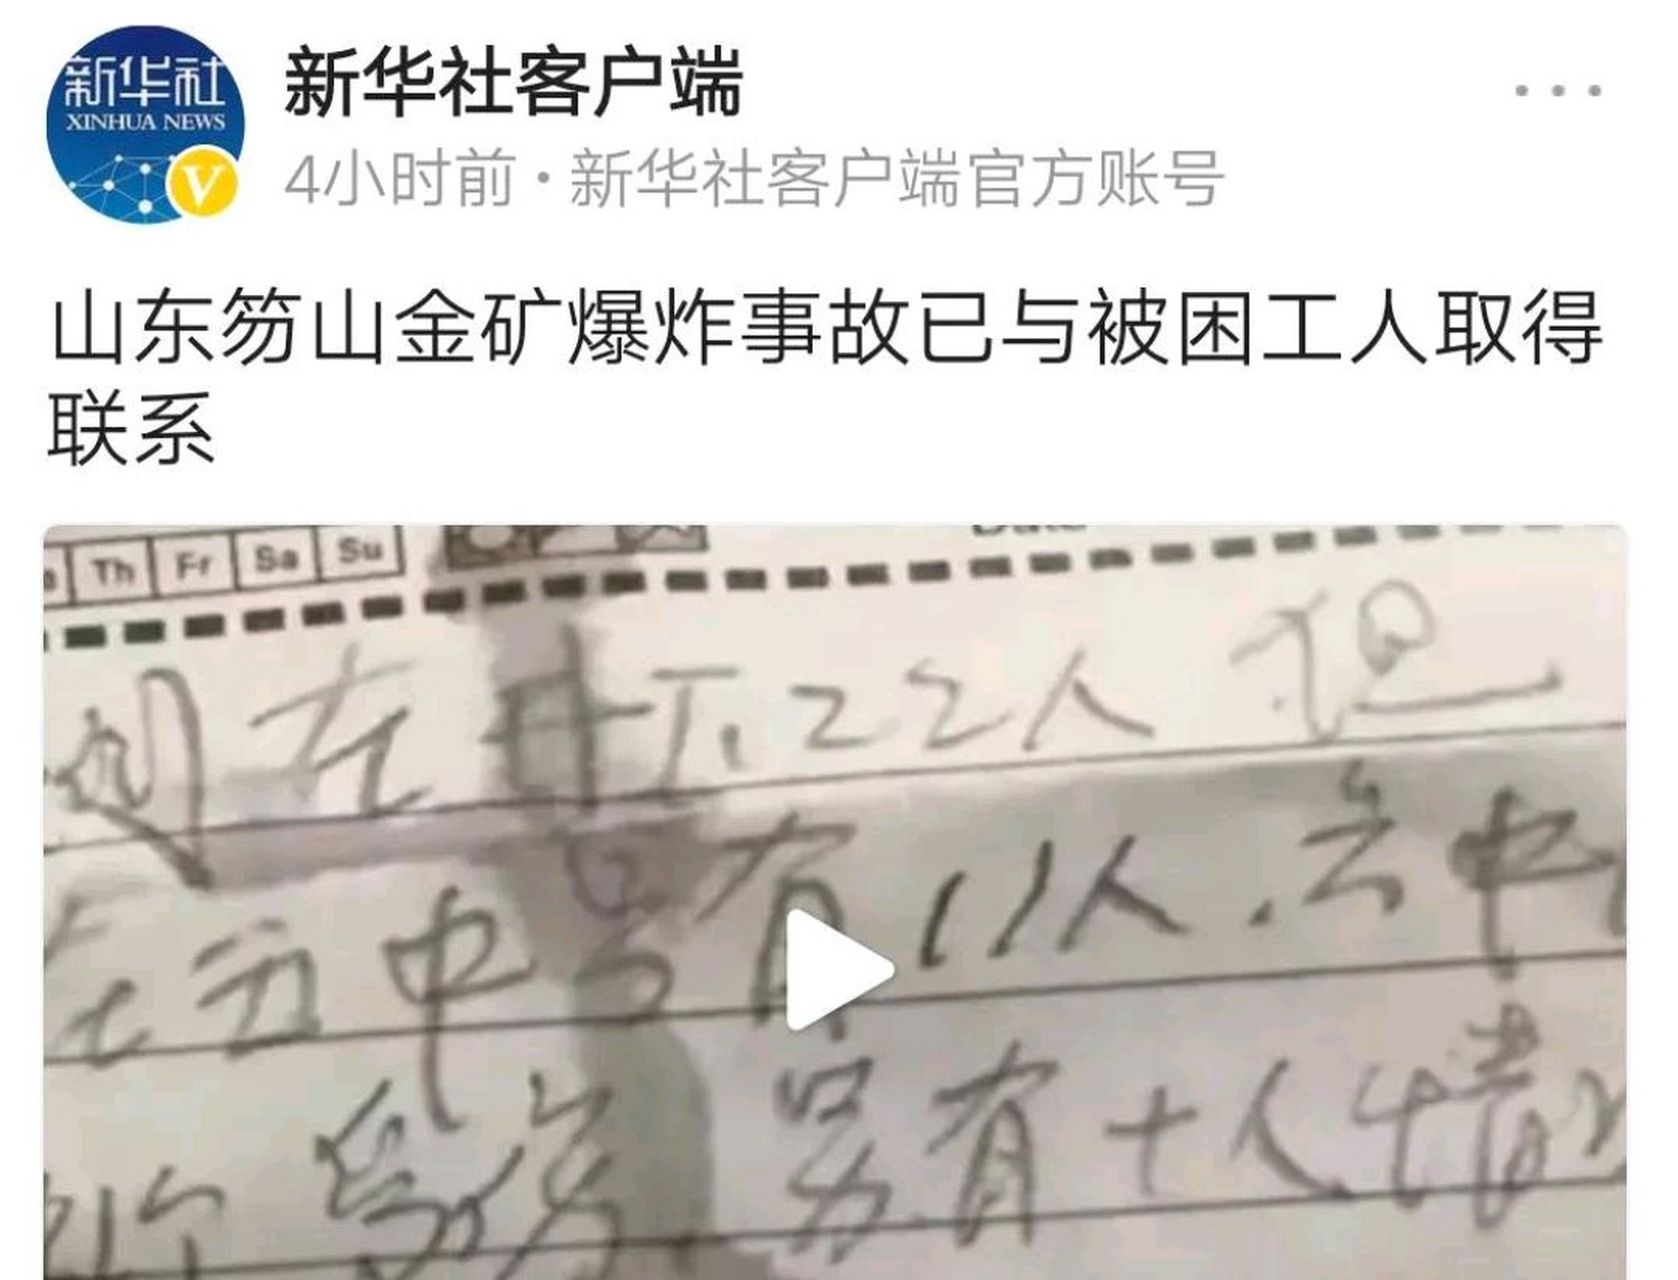 新华社
XINHUA NEWS
V
新华社客户端
4小时前·新华社客户端官方账号
山东笏山金矿爆炸事故已与被困工人取得
联系
Th Fr Sa Su
在井下22人
在五中另有11人.去中
另有十人情